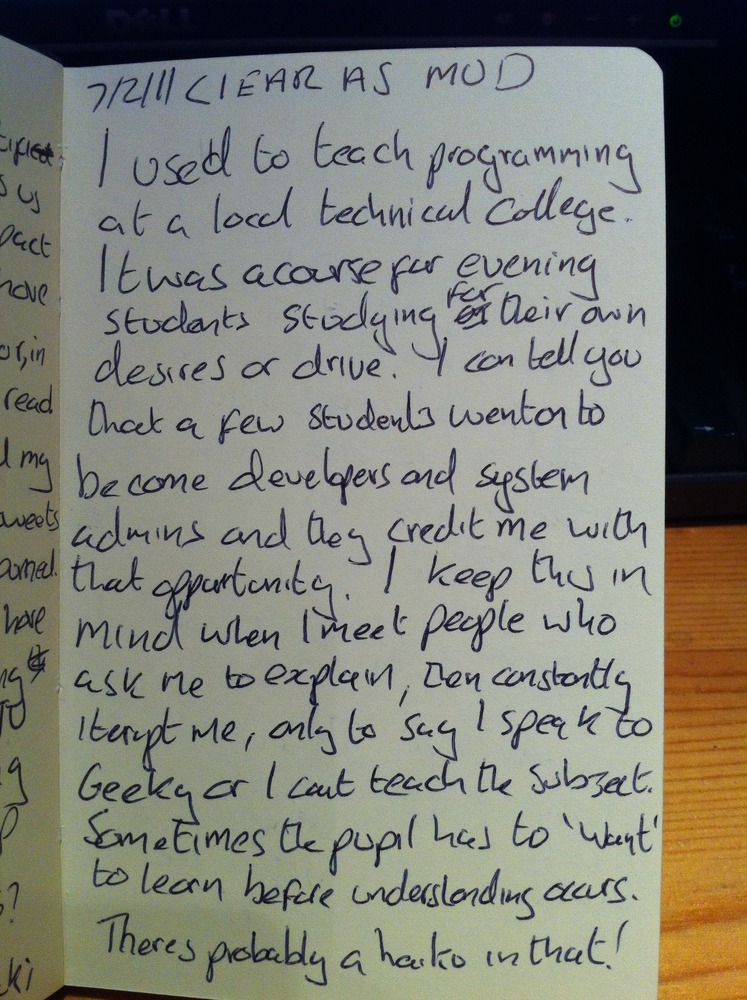 DELL
7/2/11 CLEAR AS MUD
I used to teach programming
at a local technical college.
It was a course for evening
students studying for their own
desires or drive. I can tell you
that a few students went on to
become developers and system
admins and they credit me with
that opportunity. I keep this in
mind when I meet people who
ask me to explain, then constantly
iterupt me, only to say I speak to
Geeky or I cant teach the subject.
Sometimes the pupil has to 'want'
to learn before understanding occurs.
Theres probably a haiko in that!
us
pact
have
or, in
read
my
tweets
have
ki